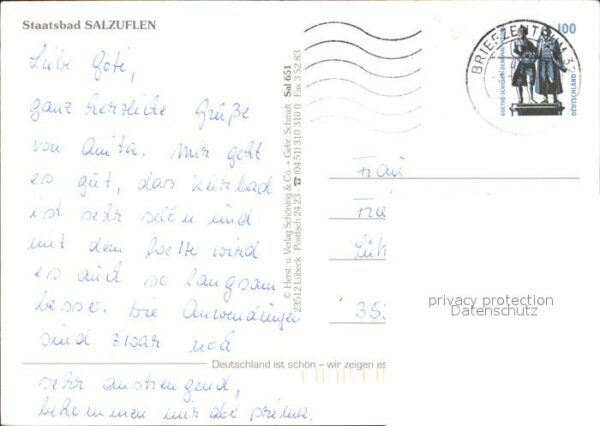 Staatsbad SALZUFLEN
Liebe Goti,
ganz herzliche Grüße
von Anita. Mir geht
es gut, das Kurbad
ist sehr schön und
mit dem Wetter wird
es auch so langsam
besser. Die Anwendungen
sind zwar noch
sehr anstrengend,
bekommen mir aber prima.
© Herst. u. Verlag Schöning & Co. + Gebr. Schmidt · Sal 651
23512 Lübeck · Postfach 24 23 · ☎ (04 51) 310 310 0 · Fax 3 52 83
Deutschland ist schön – wir zeigen es
BRIEFZENTRUM 32
100
GOETHE-SCHILLER-DENKMAL
DEUTSCHLAND
Frau
35
privacy protection
Datenschutz